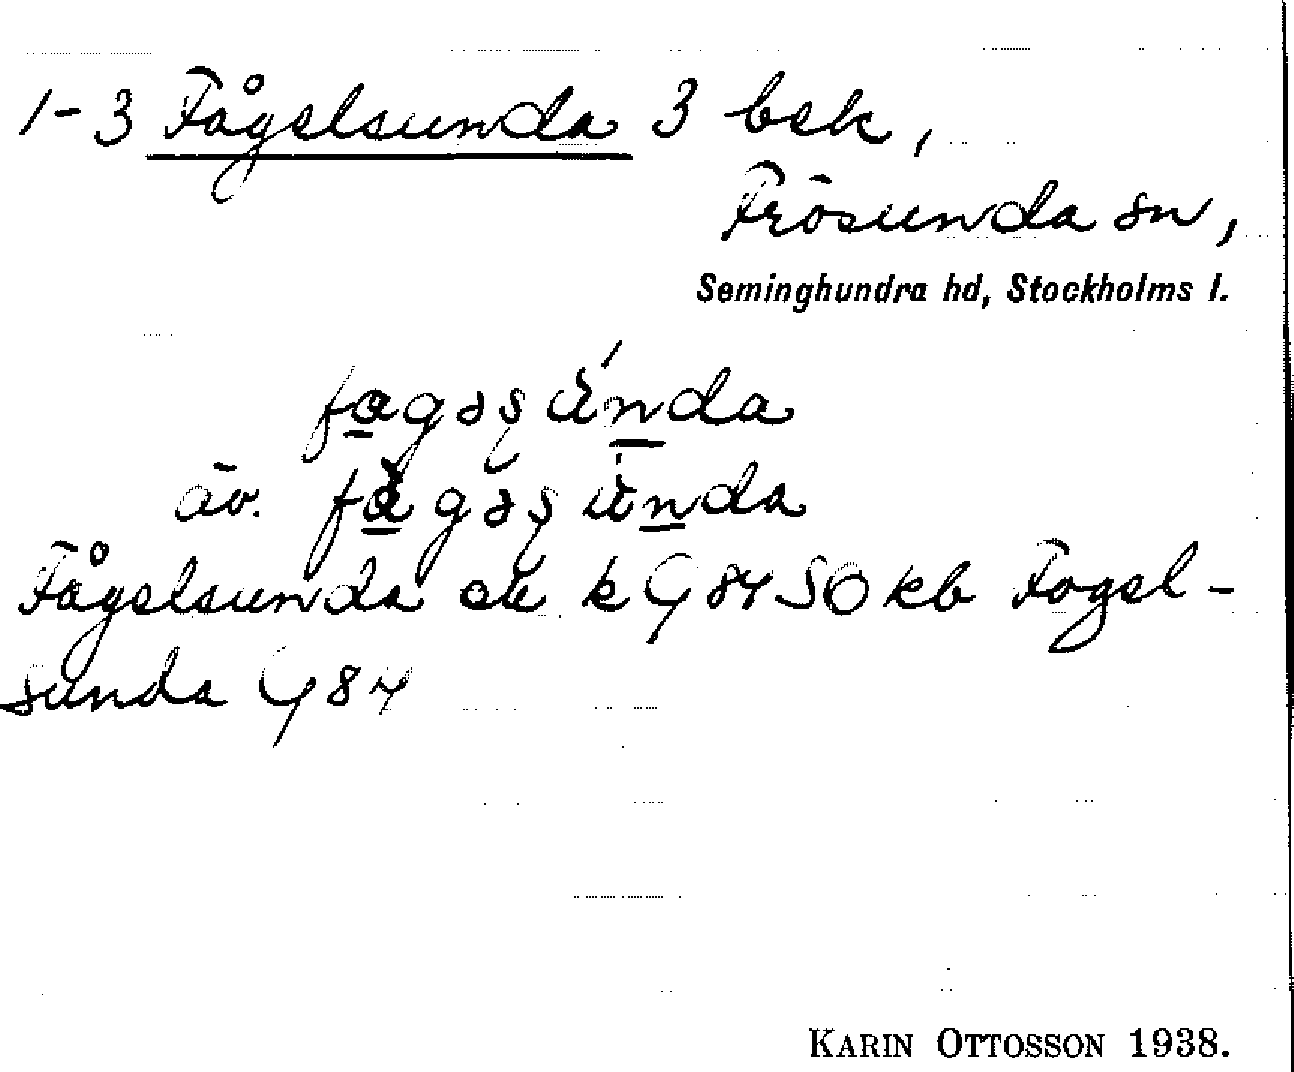 1-3 Fågelsunda 3 bsk,
Frösunda sn,
Seminghundra hd, Stockholms l.
fɑgəʂúnda
äv. fɑ̀gəʂùnda
Fågelsunda ek k G 84 SO kb Fogel-
sunda G 84
KARIN OTTOSSON 1938.